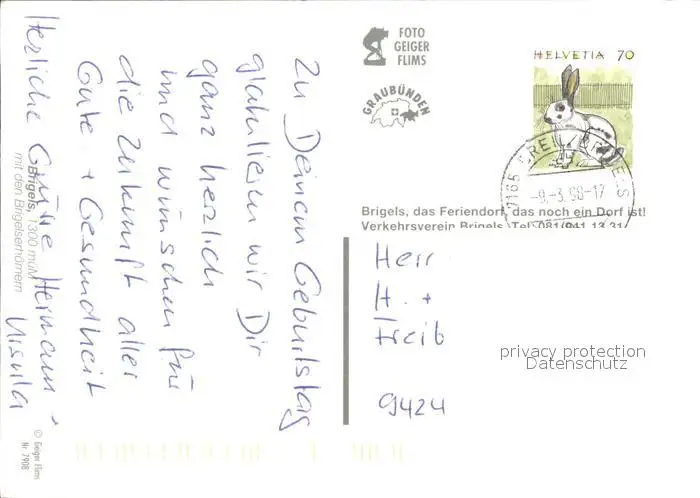 Zu Deinem Geburtstag
gratulieren wir Dir
ganz herzlich
und wünschen für
die Zukunft alles
Gute + Gesundheit
Herzliche Grüße Hermann +
Ursula
Brigels, 1300 müM
mit den Brigelserhörnern
© Geiger Flims
Nr. 7908
FOTO
GEIGER
FLIMS
GRAUBÜNDEN
HELVETIA 70
7165 BREIL/BRIGELS
-9.-3.98-17
Brigels, das Feriendorf, das noch ein Dorf ist!
Verkehrsverein Brigels, Tel. 081/941 13 31
Herr
H. +
Freib
9424
privacy protection
Datenschutz